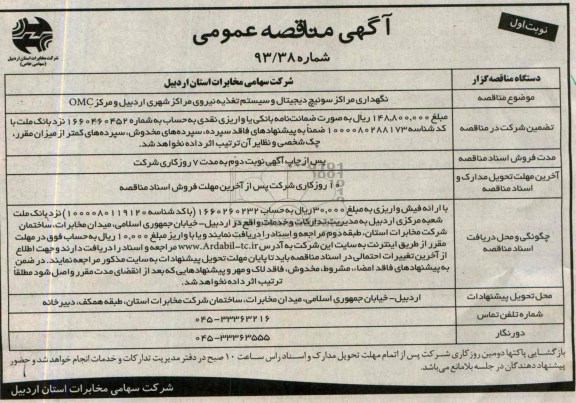 نوبت اول
آگهی مناقصه عمومی
شماره ۹۳/۳۸
شرکت مخابرات استان اردبیل
(سهامی خاص)
دستگاه مناقصه گزار
شرکت سهامی مخابرات استان اردبیل
موضوع مناقصه
نگهداری مراکز سوئیچ دیجیتال و سیستم تغذیه نیروی مراکز شهری اردبیل و مرکز OMC
تضمین شرکت در مناقصه
مبلغ ۱۴۸,۸۰۰,۰۰۰ ریال به صورت ضمانت نامه بانکی یا واریزی نقدی به حساب به شماره ۱۶۶۰۴۶۰۴۵۲ نزد بانک ملت با
کد شناسه ۱۰۰۰۰۸۰۲۸۸۱۷۳ ضمنا به پیشنهادهای فاقد سپرده، سپرده‌های مخدوش، سپرده‌های کمتر از میزان مقرر،
چک شخصی و نظایر آن ترتیب اثر داده نخواهد شد.
مدت فروش اسناد مناقصه
پس از چاپ آگهی نوبت دوم به مدت ۷ روز کاری شرکت
آخرین مهلت تحویل مدارک و
اسناد مناقصه
۱۰ روز کاری شرکت پس از آخرین مهلت فروش اسناد مناقصه
چگونگی و محل دریافت
اسناد مناقصه
با ارائه فیش واریزی به مبلغ ۳۰,۰۰۰ ریال به حساب ۱۶۶۰۲۶۰۲۳۲ (با کد شناسه ۱۰۰۰۰۸۰۱۱۹۱۲۰) نزد بانک ملت
شعبه مرکزی اردبیل به مدیریت تدارکات و خدمات واقع در اردبیل- خیابان جمهوری اسلامی، میدان مخابرات، ساختمان
شرکت مخابرات استان، طبقه دوم مراجعه و اسناد را دریافت نمایند و یا با واریز مبلغ ۱۰,۰۰۰ ریال به حساب فوق در مهلت
مقرر از طریق اینترنت به سایت این شرکت به آدرس www.Ardabil-tc.ir مراجعه و اسناد را دریافت دارند و جهت اطلاع
از آخرین تغییرات احتمالی در اسناد مناقصه باید تا پایان مهلت تحویل پیشنهادات به سایت مذکور مراجعه نمایند. در ضمن
به پیشنهادهای فاقد امضاء، مشروط، مخدوش، فاقد لاک و مهر و پیشنهادهایی که بعد از انقضای مدت مقرر واصل شود مطلقاً
ترتیب اثر داده نخواهد شد.
محل تحویل پیشنهادات
اردبیل- خیابان جمهوری اسلامی، میدان مخابرات، ساختمان شرکت مخابرات استان، طبقه همکف، دبیرخانه
شماره تلفن تماس
۰۴۵-۳۳۳۶۳۲۱۶
دورنگار
۰۴۵-۳۳۳۶۳۵۵۵
بازگشایی پاکتها دومین روز کاری شرکت پس از اتمام مهلت تحویل مدارک و اسناد راس ساعت ۱۰ صبح در دفتر مدیریت تدارکات و خدمات انجام خواهد شد و حضور
پیشنهاد دهندگان در جلسه بلامانع می‌باشد.
شرکت سهامی مخابرات استان اردبیل